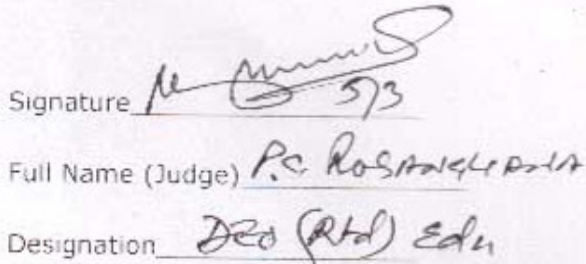 Signature
5/3
Full Name (Judge) P.C.
Designation DEO (Rtd) Edn